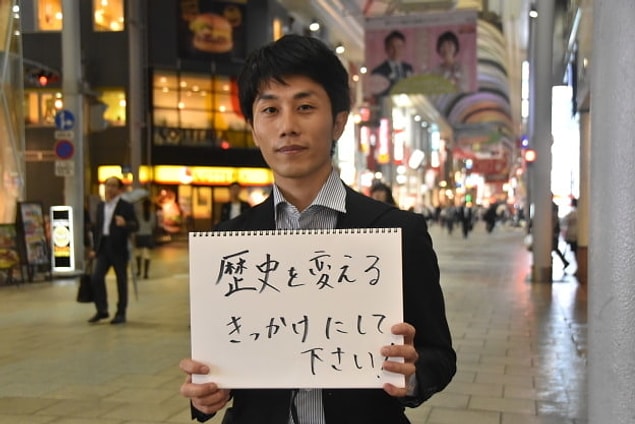 歴史を変える
きっかけにして
下さい!